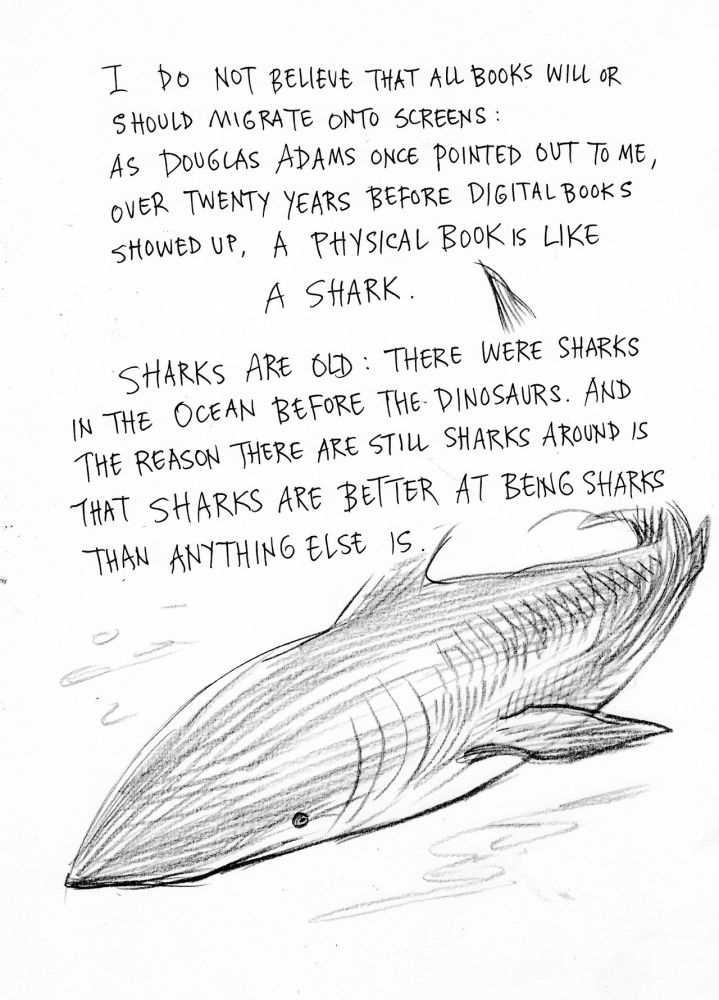 I DO NOT BELIEVE THAT ALL BOOKS WILL OR
SHOULD MIGRATE ONTO SCREENS:
AS DOUGLAS ADAMS ONCE POINTED OUT TO ME,
OVER TWENTY YEARS BEFORE DIGITAL BOOKS
SHOWED UP, A PHYSICAL BOOK IS LIKE
A SHARK.
SHARKS ARE OLD: THERE WERE SHARKS
IN THE OCEAN BEFORE THE DINOSAURS. AND
THE REASON THERE ARE STILL SHARKS AROUND IS
THAT SHARKS ARE BETTER AT BEING SHARKS
THAN ANYTHING ELSE IS.